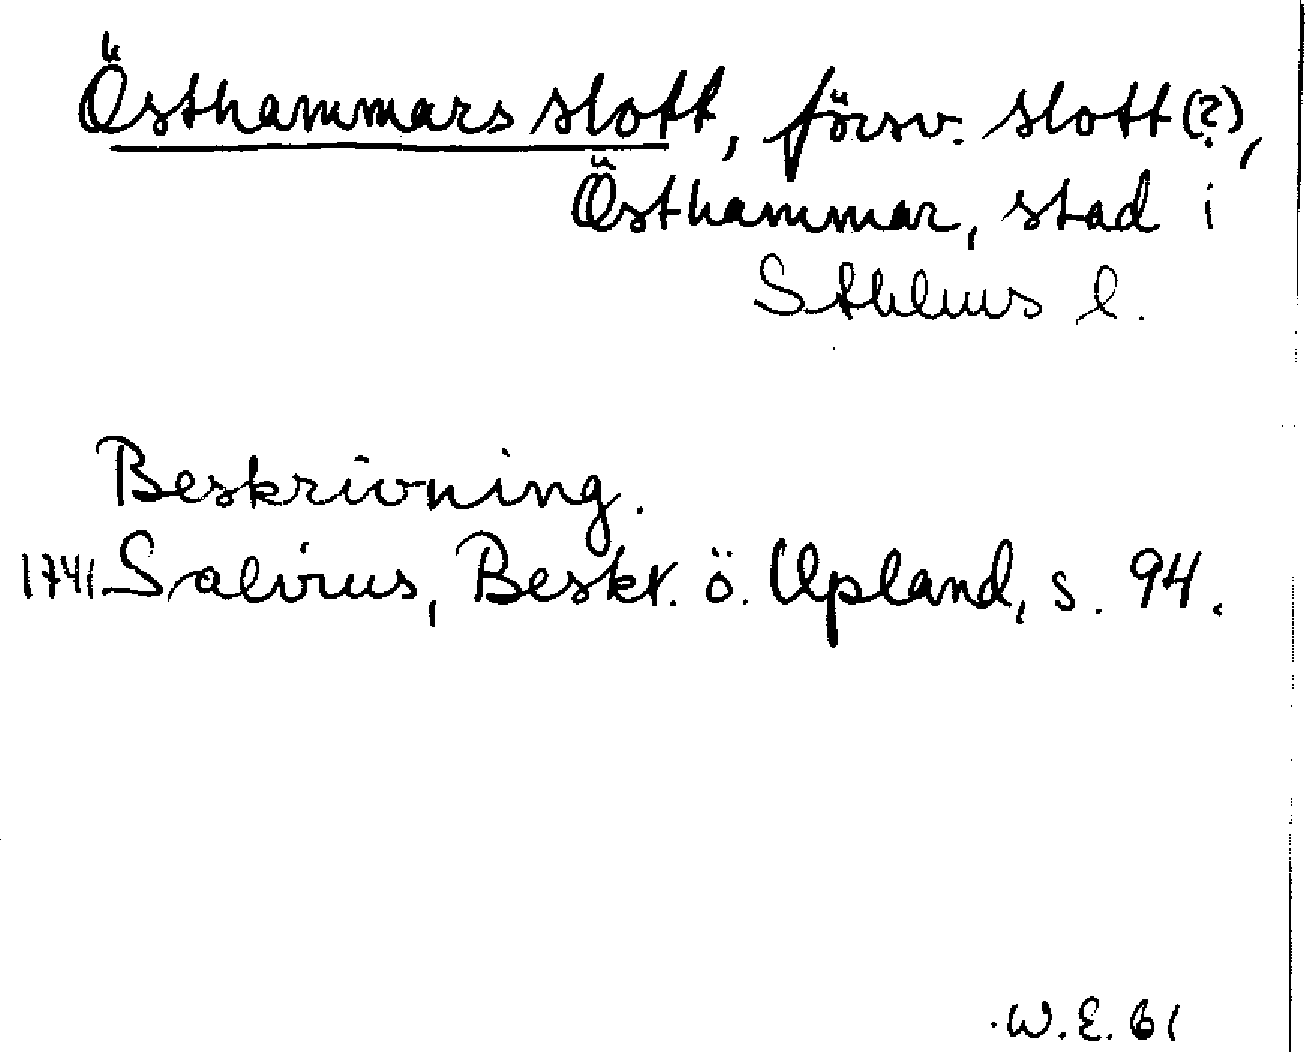 Östhammars slott, försv. slott (?),
Östhammar, stad i
Sthlms l.
Beskrivning.
1741 Salvius, Beskr. ö. Upland, s. 94.
W. E. 61